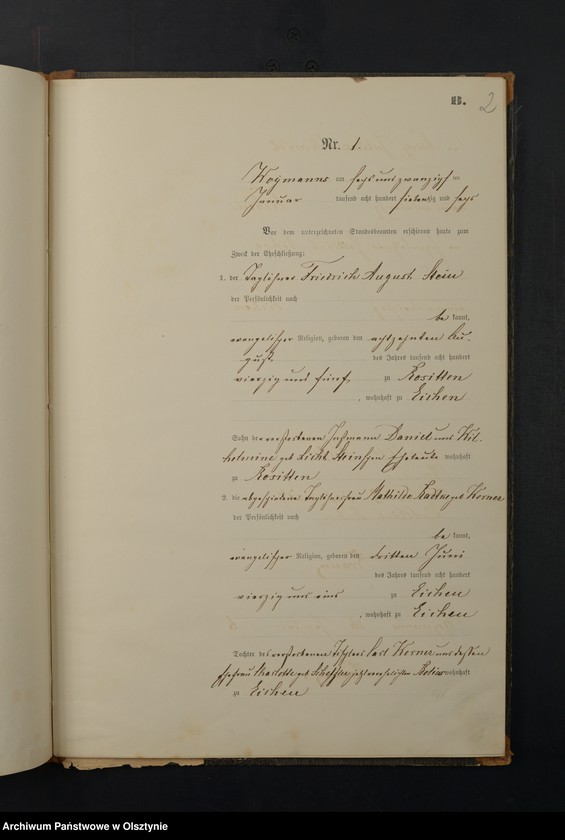 B. 2
Nr. 1.
Wogmanns am sechsundzwanzigsten
Januar tausend acht hundert siebenzig und sechs
Vor dem unterzeichneten Standesbeamten erschienen heute zum
Zweck der Eheschließung:
1. der Taglöhner Friedrich August Stein
der Persönlichkeit nach
be kannt,
evangelischer Religion, geboren den achtzehnten Au-
gust des Jahres tausend acht hundert
vierzig und fünf, zu Rositten
, wohnhaft zu Eichen
Sohn der verstorbenen Daniel und Wil-
helmine geb Licht Steinschen Eheleute wohnhaft
zu Rositten
2. die abgeschiedene Mathilde geb Korner
der Persönlichkeit nach
be kannt,
evangelischer Religion, geboren den dritten Juni
des Jahres tausend acht hundert
vierzig und eins zu Eichen
, wohnhaft zu Eichen
Tochter des verstorbenen Tischlers Carl Korner und dessen
Ehefrau Charlotte geb jetzt verehelichten wohnhaft
zu Eichen
Archiwum Państwowe w Olsztynie